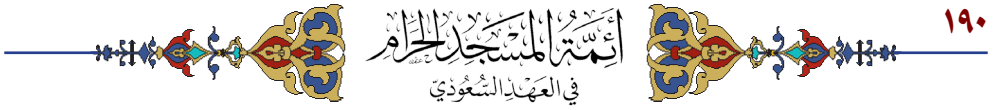 ١٩٠
أَئِمَّةُ المَسْجِدِ الحَرَامِ
في العَهْدِ السُّعُودِيّ